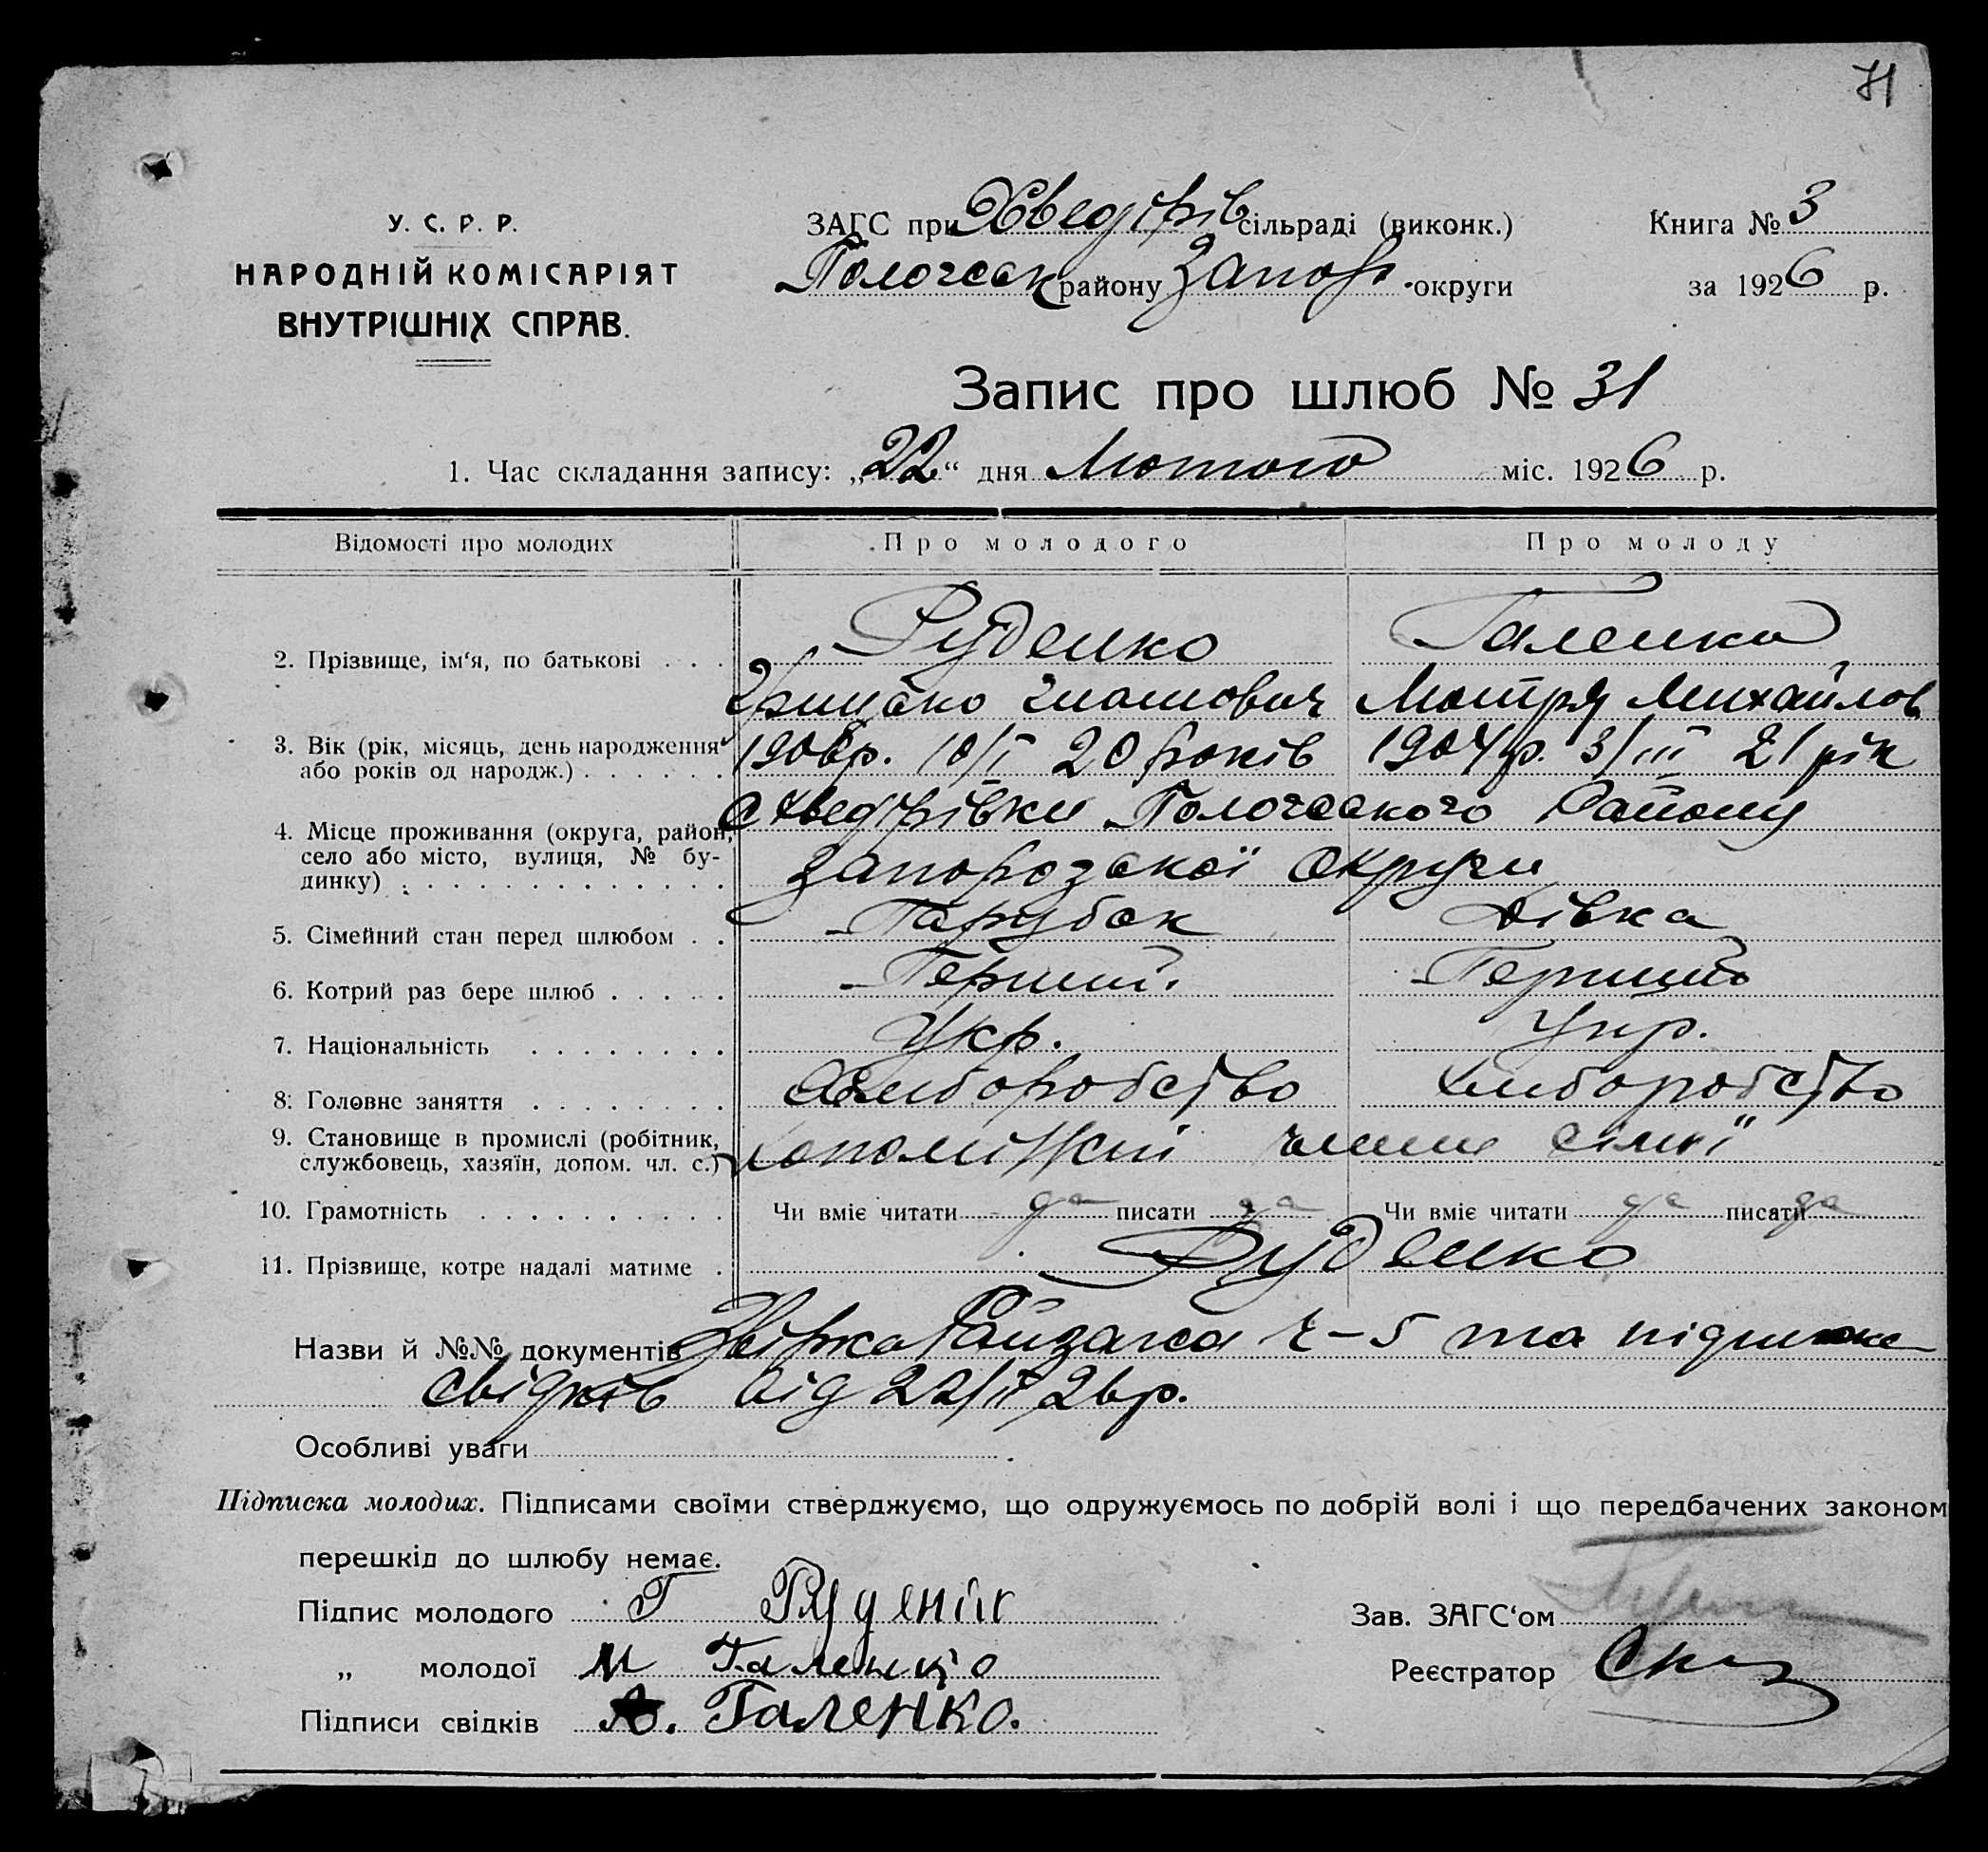 71
У. С. Р. Р.
НАРОДНІЙ КОМІСАРІЯТ
ВНУТРІШНІХ СПРАВ.
ЗАГС при Хведірів сільраді (виконк.)
Пологськ району Запор. округи
Книга № 3
за 1926 р.
Запис про шлюб № 31
1. Час складання запису: „22“ дня Лютого міс. 1926 р.
Відомості про молодих Про молодого Про молоду
2. Прізвище, ім‘я, по батькові . . . Руденко Галенко
Грицько Мотря Михайлов
3. Вік (рік, місяць, день народження або років од народж.) . . . . . . 1906р. 10/I 20 років 1904р. 3/III 21 рік
4. Місце проживання (округа, район, село або місто, вулиця, № будинку) . . . . . . . . . . . . . с Хведірівки Пологського Району
Запорозської Округи
5. Сімейний стан перед шлюбом . . Парубок Дівка
6. Котрий раз бере шлюб . . . . . Перший. Перший
7. Національність . . . . . . . . Укр. Укр.
8. Головне заняття . . . . . . . . Хліборобство Хліборобство
9. Становище в промислі (робітник, службовець, хазяїн, допом. чл. с.) члени сімї
10. Грамотність . . . . . . . . . . Чи вміє читати да писати да Чи вміє читати да писати да
11. Прізвище, котре надалі матиме . Руденко
Назви й №№ документів Райзагса Ч-5 та підписка
свідків від 22/II 26р.
Особливі уваги
Підписка молодих. Підписами своїми стверджуємо, що одружуємось по добрій волі і що передбачених законом
перешкід до шлюбу немає.
Підпис молодого Г Руденко
„ молодої М Галенко
Підписи свідків А. Галенко.
Зав. ЗАГС‘ом
Реєстратор